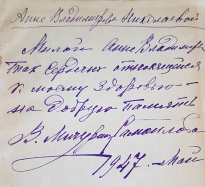 Анне Владимировне Николаевой
Милой Анне Владимир
так сердечно относящейся
к моему здоровью –
на добрую память
В. Мичурина-Самойлова
1947 – Май